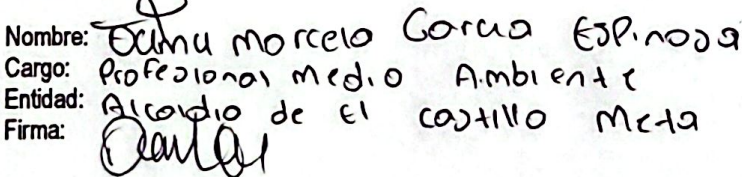 Nombre: Marcela Garcia Espinosa
Cargo: Profesional Medio Ambiente
Entidad: Alcaldia de El castillo Meta
Firma: